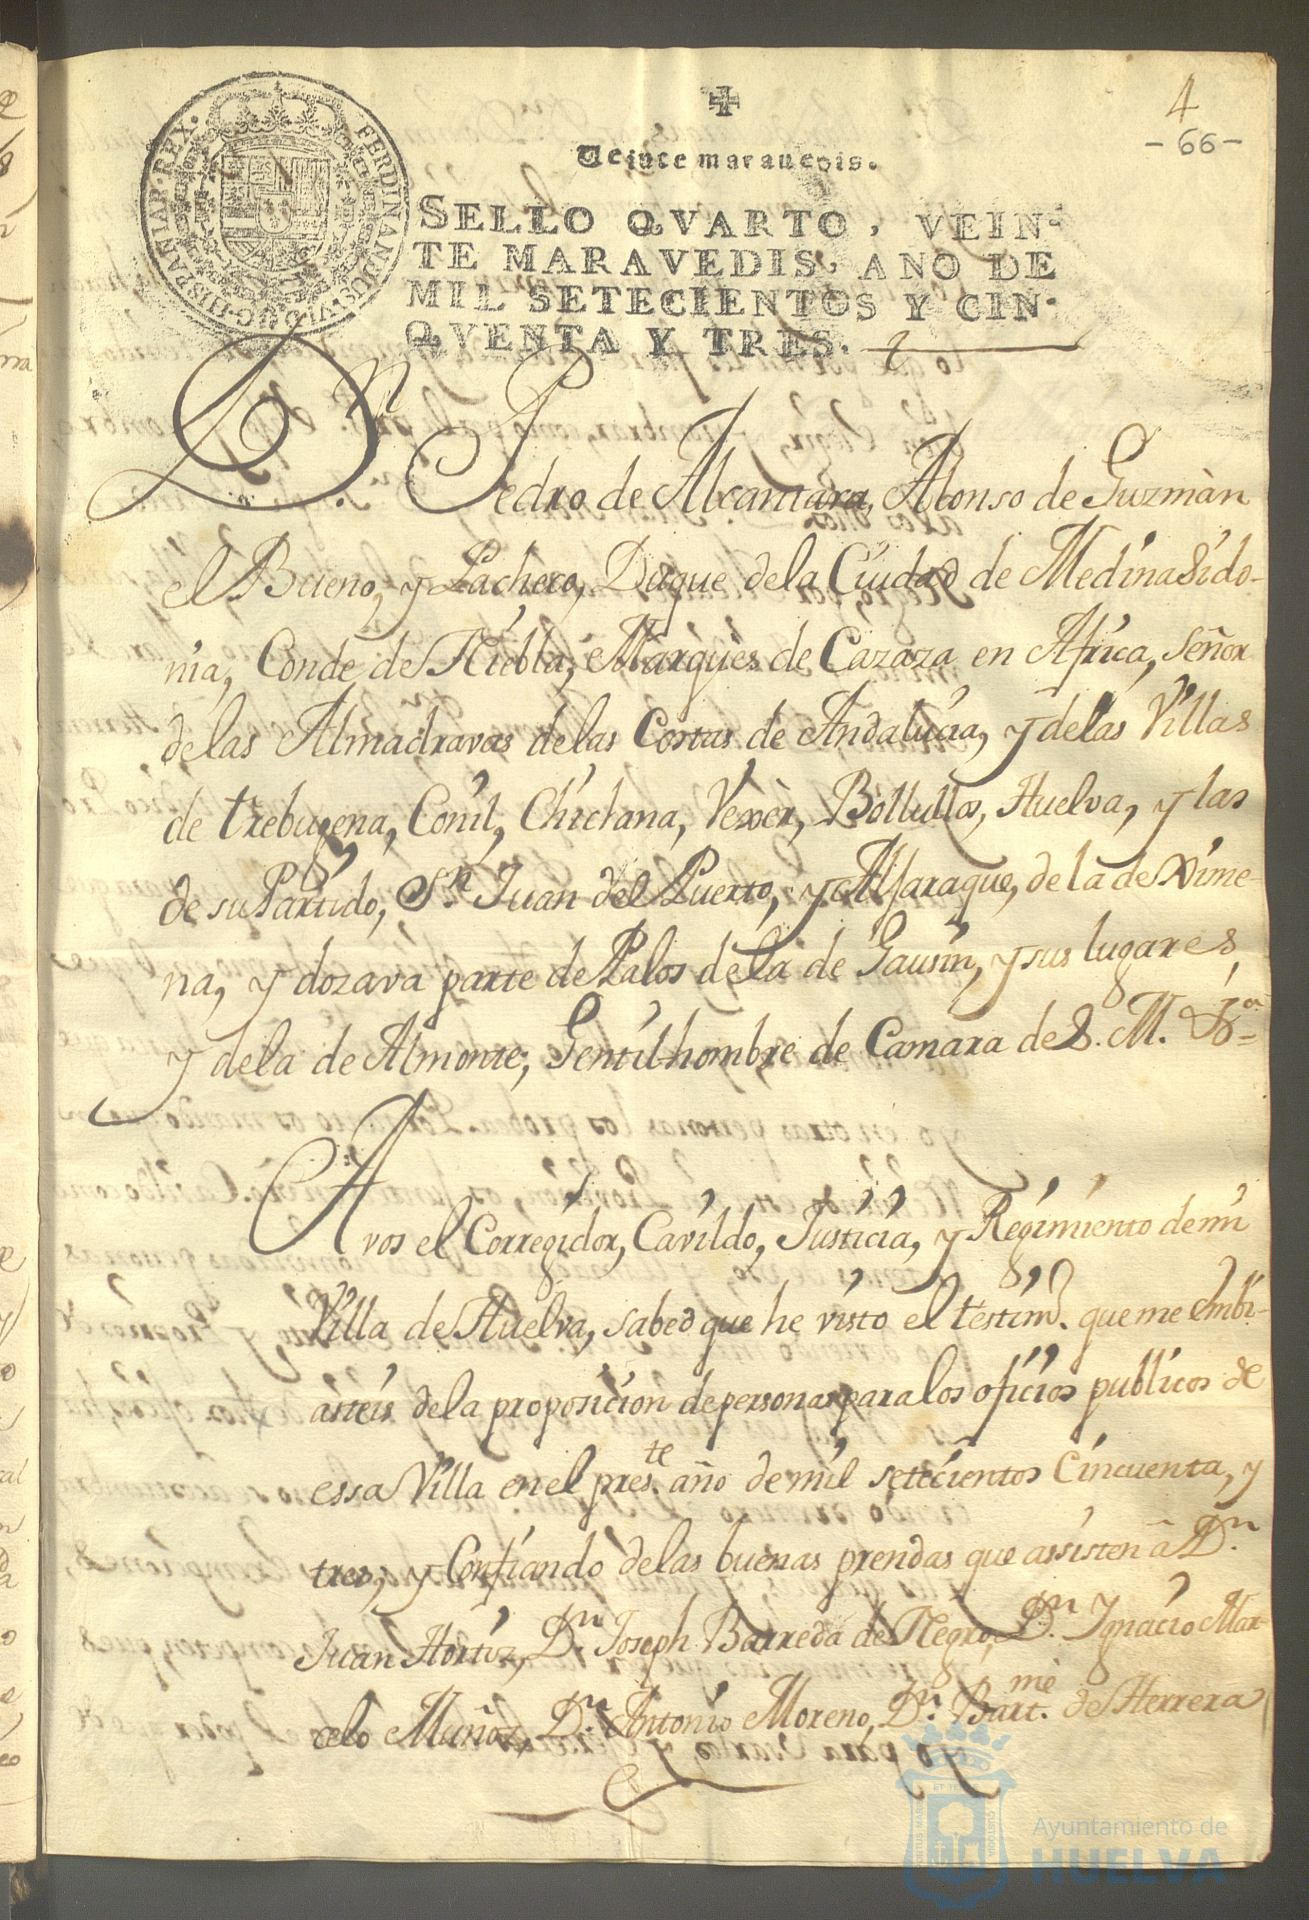 4
- 66 -
FERDINANDUS·VI·D·G·HISPANIAR·REX·
Veinte maravedis.
SELLO QVARTO, VEIN-
TE MARAVEDIS, AÑO DE
MIL SETECIENTOS Y CIN-
QVENTA Y TRES.
Dn. Pedro de Alcantara, Alonso de Guzmàn
el Bueno, y Pacheco, Duque de la Ciudad de Medina Sido-
nia, Conde de Niebla, Marques de Cazaza en Africa, Señor
de las Almadravas de las Costas de Andalucia, y de las Villas
de trebugena, Conil, Chiclana, Vexèr, Bollullos, Huelva, y las
de su Partido, Sn. Juan del Puerto, y Aljaraque, de la de Xime-
na, y dozava parte de Palos de la de Gausin, y sus lugares,
y de la de Almonte, Gentil-hombre de Camara de S. M. &a.=
A vos el Corregidor, Cavildo, Justicia, y Regimiento de mi
Villa de Huelva, sabed que he visto el testimo. que me embi-
asteis de la proposicion de personas para los oficios publicos de
essa Villa en el preste. año de mil setecientos Cincuenta, y
tres, y Confiando de las buenas prendas que assisten â Dn.
Juan Hortiz, Dn. Joseph Barreda de Negro, Dn. Ygnacio Mar-
celo Muñoz, Dn. Antonio Moreno, Dn. Bartme. de Herrera
Ayuntamiento de
HUELVA